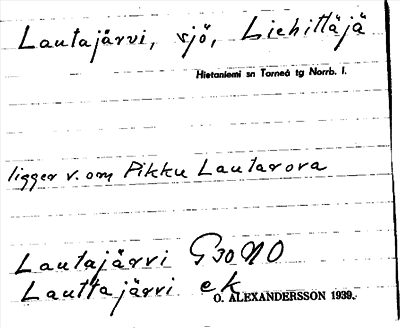 Lautajärvi, sjö, Liehittäjä
Hietaniemi sn Torneå tg Norrb. l.
ligger v. om Pikku Lautavora
Lautajärvi G30NO
Lauttajärvi ek
O. ALEXANDERSSON 1939.